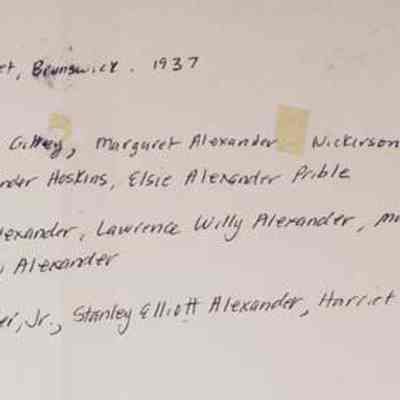 et, Brunswick. 1937
Gilkey, Margaret Alexander Nickerson
nder Hoskins, Elsie Alexander Prible
lexander, Lawrence Willy Alexander, m
Alexander
er, Jr., Stanley Elliott Alexander, Harriet